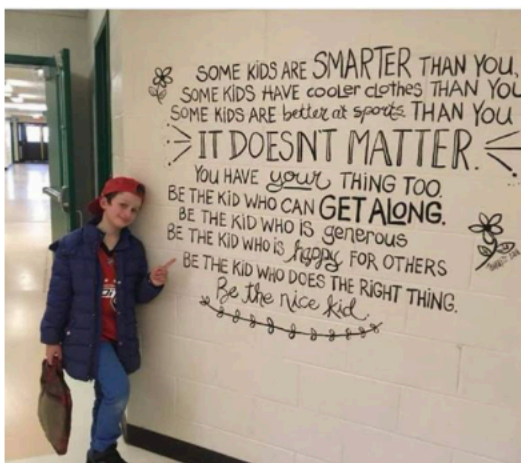 SOME KIDS ARE SMARTER THAN YOU,
SOME KIDS HAVE cooler clothes THAN YOU
SOME KIDS ARE better at sports THAN YOU
IT DOESNT MATTER.
YOU HAVE your THING TOO.
BE THE KID WHO CAN GET ALONG.
BE THE KID WHO is generous
BE THE KID WHO is happy FOR OTHERS
BE THE KID WHO DOES THE RIGHT THING.
Be the nice kid.